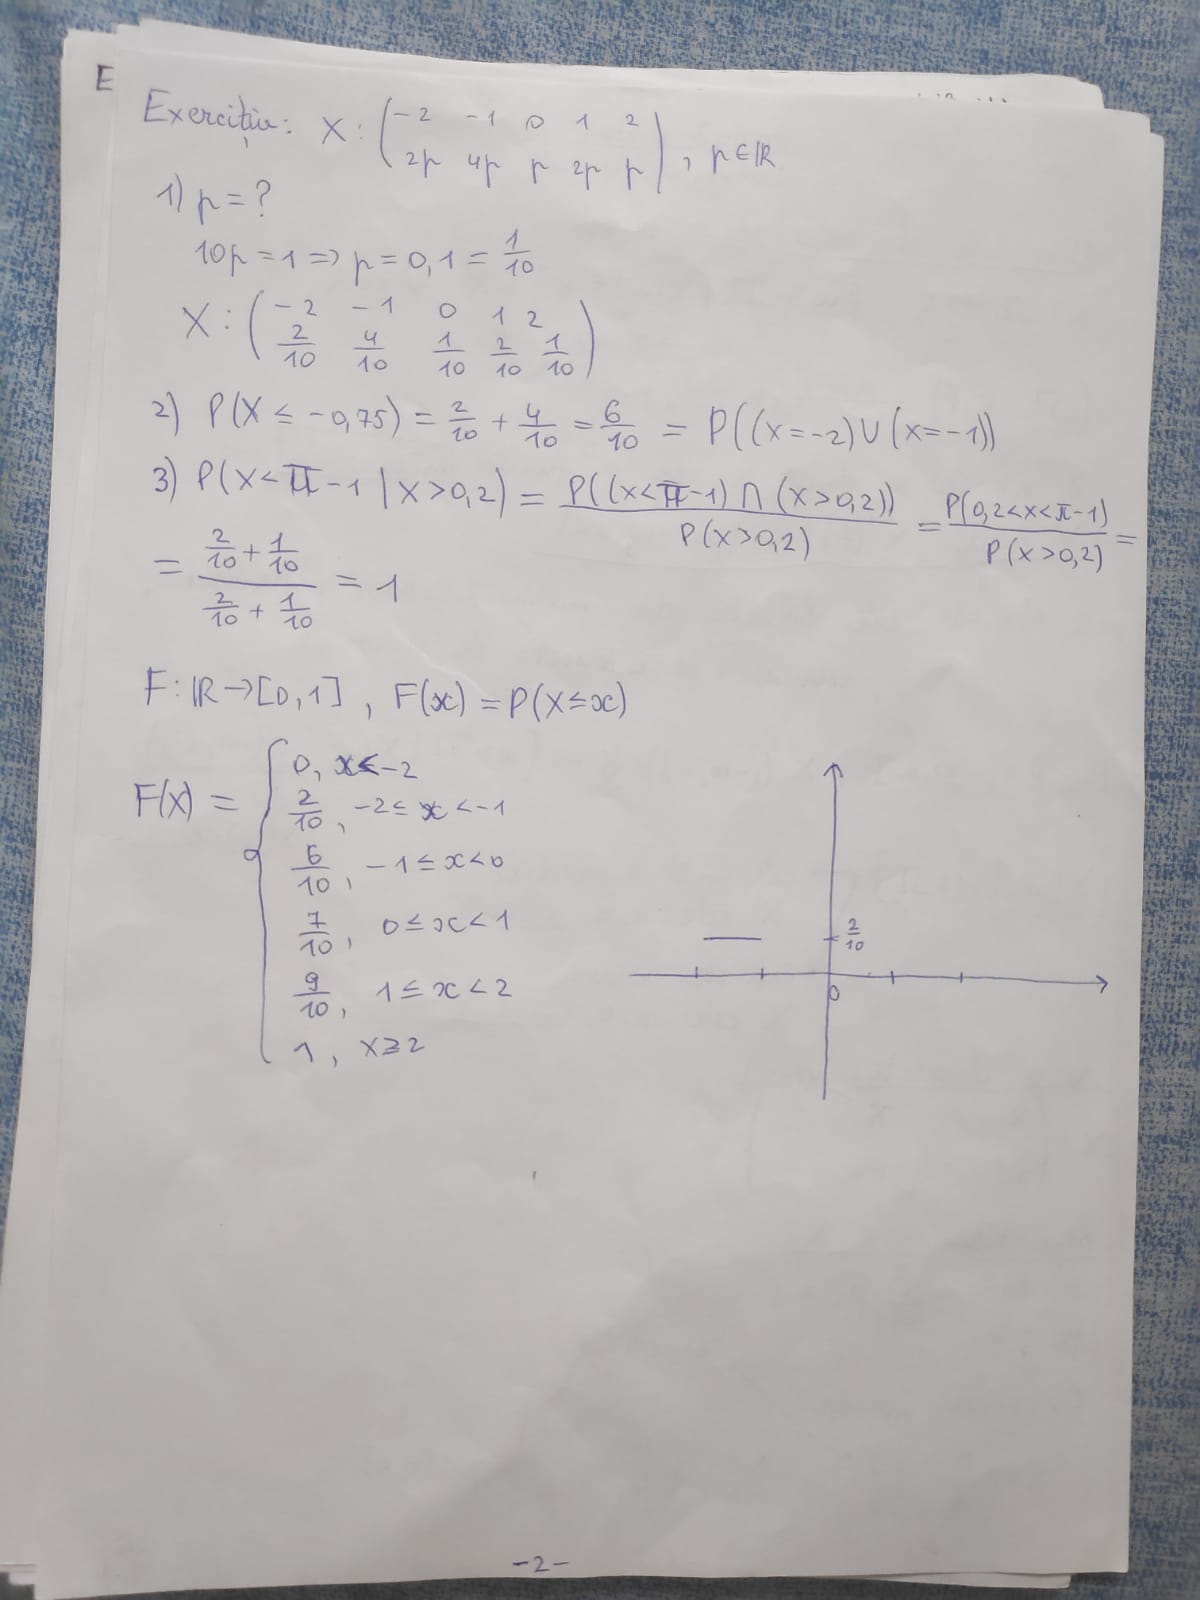 E
Exercițiu: X : ( -2 -1 0 1 2
2p 4p p 2p p ) , p ∈ ℝ
1) p = ?
10p = 1 => p = 0,1 = 1/10
X : ( -2 -1 0 1 2
2/10 4/10 1/10 2/10 1/10 )
2) P(X ≤ -0,75) = 2/10 + 4/10 = 6/10 = P((X=-2) ∪ (X=-1))
3) P(X < π - 1 | X > 0,2) = P((X<π-1) ∩ (X>0,2)) / P(X>0,2) = P(0,2<X<π-1) / P(X>0,2) =
= (2/10 + 1/10) / (2/10 + 1/10) = 1
F: ℝ → [0,1] , F(x) = P(X ≤ x)
F(x) = { 0, x < -2
2/10, -2 ≤ x < -1
6/10, -1 ≤ x < 0
7/10, 0 ≤ x < 1
9/10, 1 ≤ x < 2
1, x ≥ 2
2/10
0
-2-